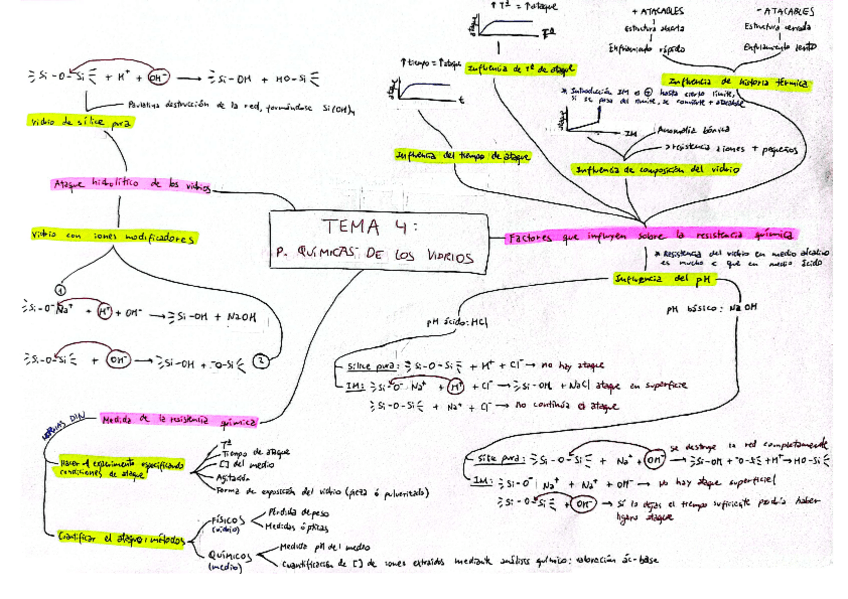 TEMA 4:
P. QUÍMICAS DE LOS VIDRIOS
Ataque hidrolítico de los vidrios
Vidrio de sílice pura
≡Si-O-Si≡ + H⁺ + OH⁻ → ≡Si-OH + HO-Si≡
Paulatina destrucción de la red, formándose Si(OH)₄
Vidrio con iones modificadores
1
≡Si-O⁻Na⁺ + H⁺ + OH⁻ → ≡Si-OH + NaOH
≡Si-O-Si≡ + OH⁻ → ≡Si-OH + ⁻O-Si≡ 2
Medida de la resistencia química
NORMAS DIN
Hacer el experimento especificando
condiciones de ataque
Tª
Tiempo de ataque
[] del medio
Agitación
Forma de exposición del vidrio (pieza ó pulverizado)
Cuantificar el ataque: métodos
FÍSICOS
(vidrio)
Pérdida de peso
Medidas ópticas
QUÍMICOS
(medio)
Medida pH del medio
Cuantificación de [] de iones extraídos mediante análisis químico: valoración ác-base
Factores que influyen sobre la resistencia química
Influencia del tiempo de ataque
↑ tiempo = ↑ ataque
ataque
t
Influencia de Tª de ataque
↑ Tª = ↑ ataque
ataque
Tª
Influencia de composición del vidrio
* Introducción IM es ⊕ hasta cierto límite,
si se pasa del límite, se convierte + atacable
ataque
IM
Anomalía bórica
> resistencia a iones + pequeños
Influencia de historia térmica
+ ATACABLES
Estructura abierta
Enfriamiento rápido
- ATACABLES
Estructura cerrada
Enfriamiento lento
* Resistencia del vidrio en medio alcalino
es mucho < que en medio ácido
Influencia del pH
pH ácido: HCl
Sílice pura: ≡Si-O-Si≡ + H⁺ + Cl⁻ → no hay ataque
IM: ≡Si-O⁻ Na⁺ + H⁺ + Cl⁻ → ≡Si-OH + NaCl ataque en superficie
≡Si-O-Si≡ + Na⁺ + Cl⁻ → no continúa el ataque
pH básico: NaOH
se destruye la red completamente
Sílice pura: ≡Si-O-Si≡ + Na⁺ + OH⁻ → ≡Si-OH + ⁻O-Si≡ + H⁺ → HO-Si≡
IM: ≡Si-O⁻ Na⁺ + Na⁺ + OH⁻ → no hay ataque superficial
≡Si-O-Si≡ + OH⁻ → Si lo dejas el tiempo suficiente podría haber
ligero ataque